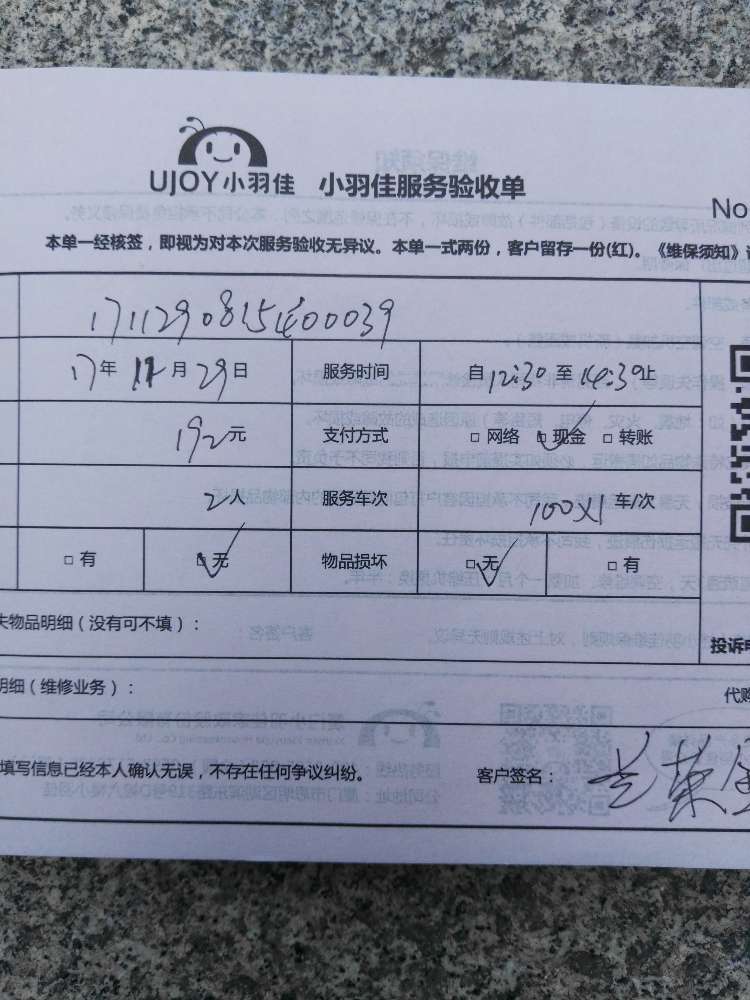 UJOY小羽佳 小羽佳服务验收单
No
本单一经核签，即视为对本次服务验收无异议。本单一式两份，客户留存一份(红)。《维保须知》
17112908151400039
17年11月29日 服务时间 自12:30至14:30止
192元 支付方式 □网络 □现金 □转账
2人 服务车次 100X1 车/次
□有 □无 物品损坏 □无 □有
失物品明细（没有可不填）：
投诉电
明细（维修业务）： 代购
填写信息已经本人确认无误，不存在任何争议纠纷。 客户签名：